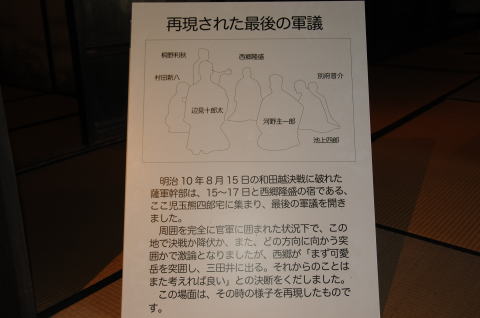 再現された最後の軍議
桐野利秋
西郷隆盛
村田新八
別府晋介
辺見十郎太
河野主一郎
池上四郎
明治10年8月15日の和田越決戦に破れた
薩軍幹部は、15〜17日と西郷隆盛の宿である、
ここ児玉熊四郎宅に集まり、最後の軍議を開き
ました。
周囲を完全に官軍に囲まれた状況下で、この
地で決戦か降伏か、また、どの方向に向かう突
囲かで激論となりましたが、西郷が「まず可愛
岳を突囲し、三田井に出る。それからのことは
また考えれば良い」との決断をくだしました。
この場面は、その時の様子を再現したもので
す。